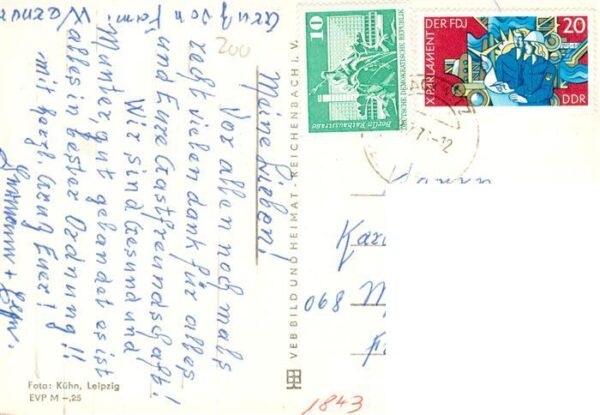 Gruß von Fam.
200
Meine Lieben!
Vor allen noch mals
recht vielen dank für alles
und Eure Gastfreundschaft!
Wir sind Gesund und
Munter, gut gelandet es ist
alles in bester Ordnung!!
mit herzl. Gruß Euer!
Foto: Kühn, Leipzig
EVP M –,25
VEB BILD UND HEIMAT · REICHENBACH i. V.
10
Berlin, Rathausstraße
DEUTSCHE DEMOKRATISCHE REPUBLIK
X. PARLAMENT DER FDJ
20
DDR
12
068
1843